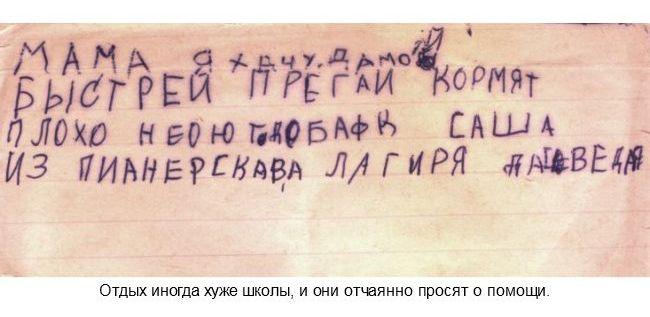 МАМА Я ХЕЧУ. ДАМОЙ
БЫСТРЕЙ ПРЕГАЙ КОРМЯТ
ПЛОХО НЕОЮТ САША
ИЗ ПИАНЕРСКАВА ЛАГИРЯ
Отдых иногда хуже школы, и они отчаянно просят о помощи.